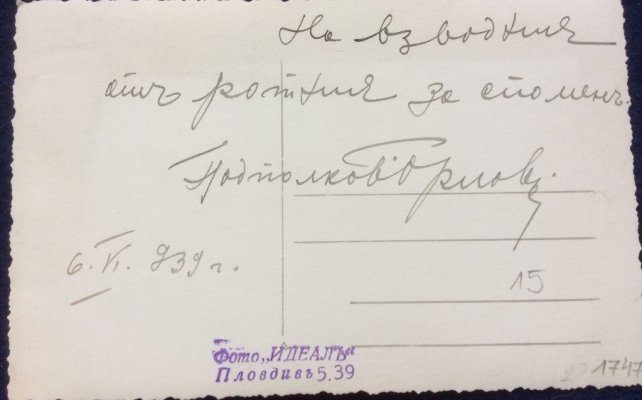 На взводния
отъ ротния за споменъ.
Подполков. Орлов.
6.VI.939 г.
15
Фото „ИДЕАЛЪ“
Пловдивъ 5.39
1747